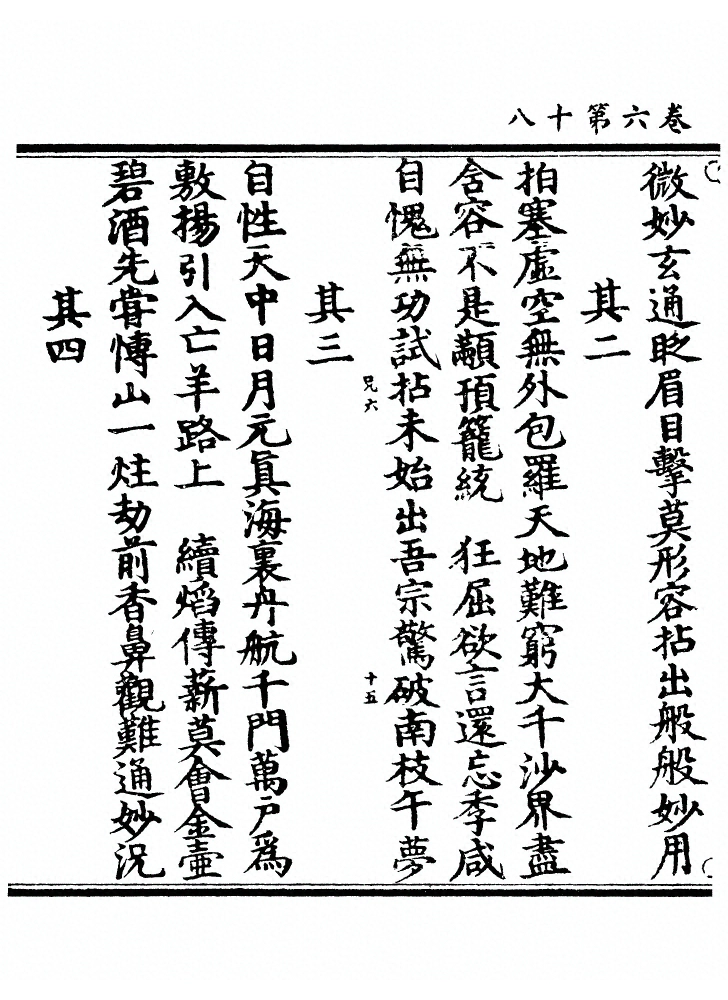 卷六第十八
微妙玄通眨眉目擊莫形容拈出般般妙用
其二
拍塞虛空無外包羅天地難窮大千沙界盡
含容不是顢頇籠統　狂屈欲言還忘季咸
自愧無功試拈未始出吾宗驚破南枝午夢
兄六
十五
其三
自性天中日月元眞海裏舟航千門萬戶爲
敷揚引入亡羊路上　續熖傳薪莫會金壷
碧酒先甞慱山一炷劫前香鼻觀難通妙況
其四